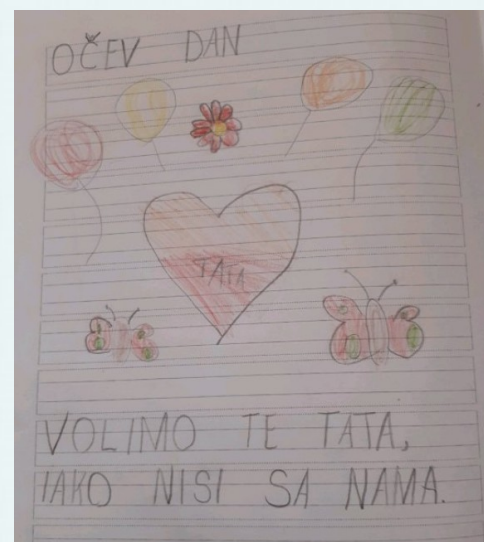 OČEV DAN
TATA
VOLIMO TE TATA,
IAKO NISI SA NAMA.